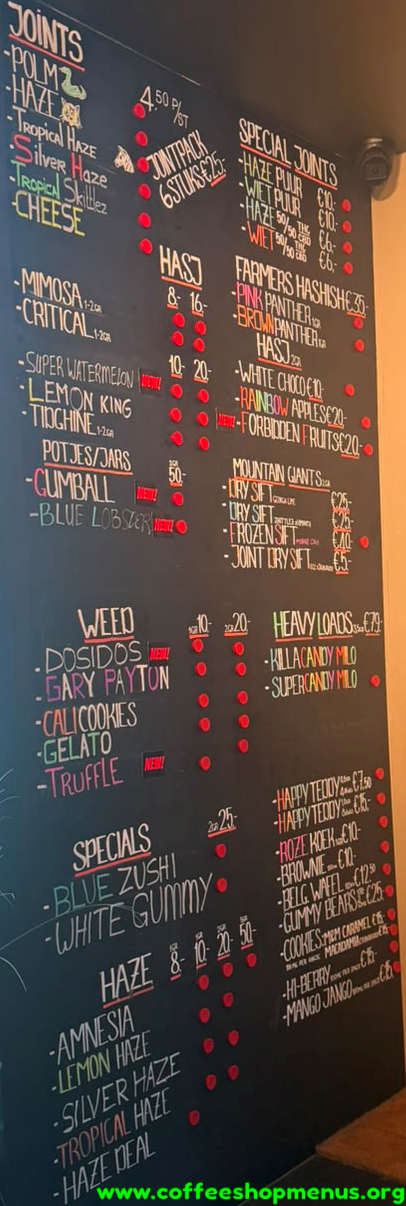 JOINTS
-POLM 4.50 P/ST
-HAZE
-Tropical Haze
-Silver Haze
-Tropical Skittlez
-CHEESE
JOINTPACK
6 STUKS €25,-
SPECIAL JOINTS
-HAZE PUUR €10,-
-WIET PUUR €10,-
-HAZE 50/50 THC CBD €6,-
-WIET 50/50 THC CBD €6,-
HASJ
8,- 16,-
-MIMOSA 1-2GR
-CRITICAL 1-2GR
10,- 20,-
-SUPER WATERMELON NEW!
-LEMON KING
-TIDGHINE 1-2GR
FARMERS HASHISH €35,-
-PINK PANTHER
-BROWN PANTHER
HASJ 2GR
-WHITE CHOCO €10,-
-RAINBOW APPLES €20,-
NEW! -FORBIDDEN FRUITS €20,-
POTJES/JARS
50,-
-GUMBALL NEW!
-BLUE LOBSTER NEW!
MOUNTAIN GIANTS
-DRY SIFT €25,-
-DRY SIFT €25,-
-FROZEN SIFT €40,-
-JOINT DRY SIFT €5,-
WEED
1GR 10,- 2GR 20,-
-DOSIDOS NEW!
-GARY PAYTON
-CALI COOKIES
-GELATO
-TRUFFLE NEW!
HEAVY LOADS 3,5GR €79,-
-KILLA CANDY MILO
-SUPER CANDY MILO
SPECIALS
2GR 25,-
-BLUE ZUSHI
-WHITE GUMMY
-HAPPY TEDDY €7,50
-HAPPY TEDDY €15,-
-ROZE KOEK €10,-
-BROWNIE €10,-
-BELG. WAFEL €12,50
-GUMMY BEARS €25,-
-COOKIES: M&M CARAMEL €15,-
MACADAMIA €15,-
-HI-BERRY €15,-
-MANGO JANGO €15,-
HAZE
8,- 10,- 20,- 50,-
-AMNESIA
-LEMON HAZE
-SILVER HAZE
-TROPICAL HAZE
-HAZE DEAL
www.coffeeshopmenus.org